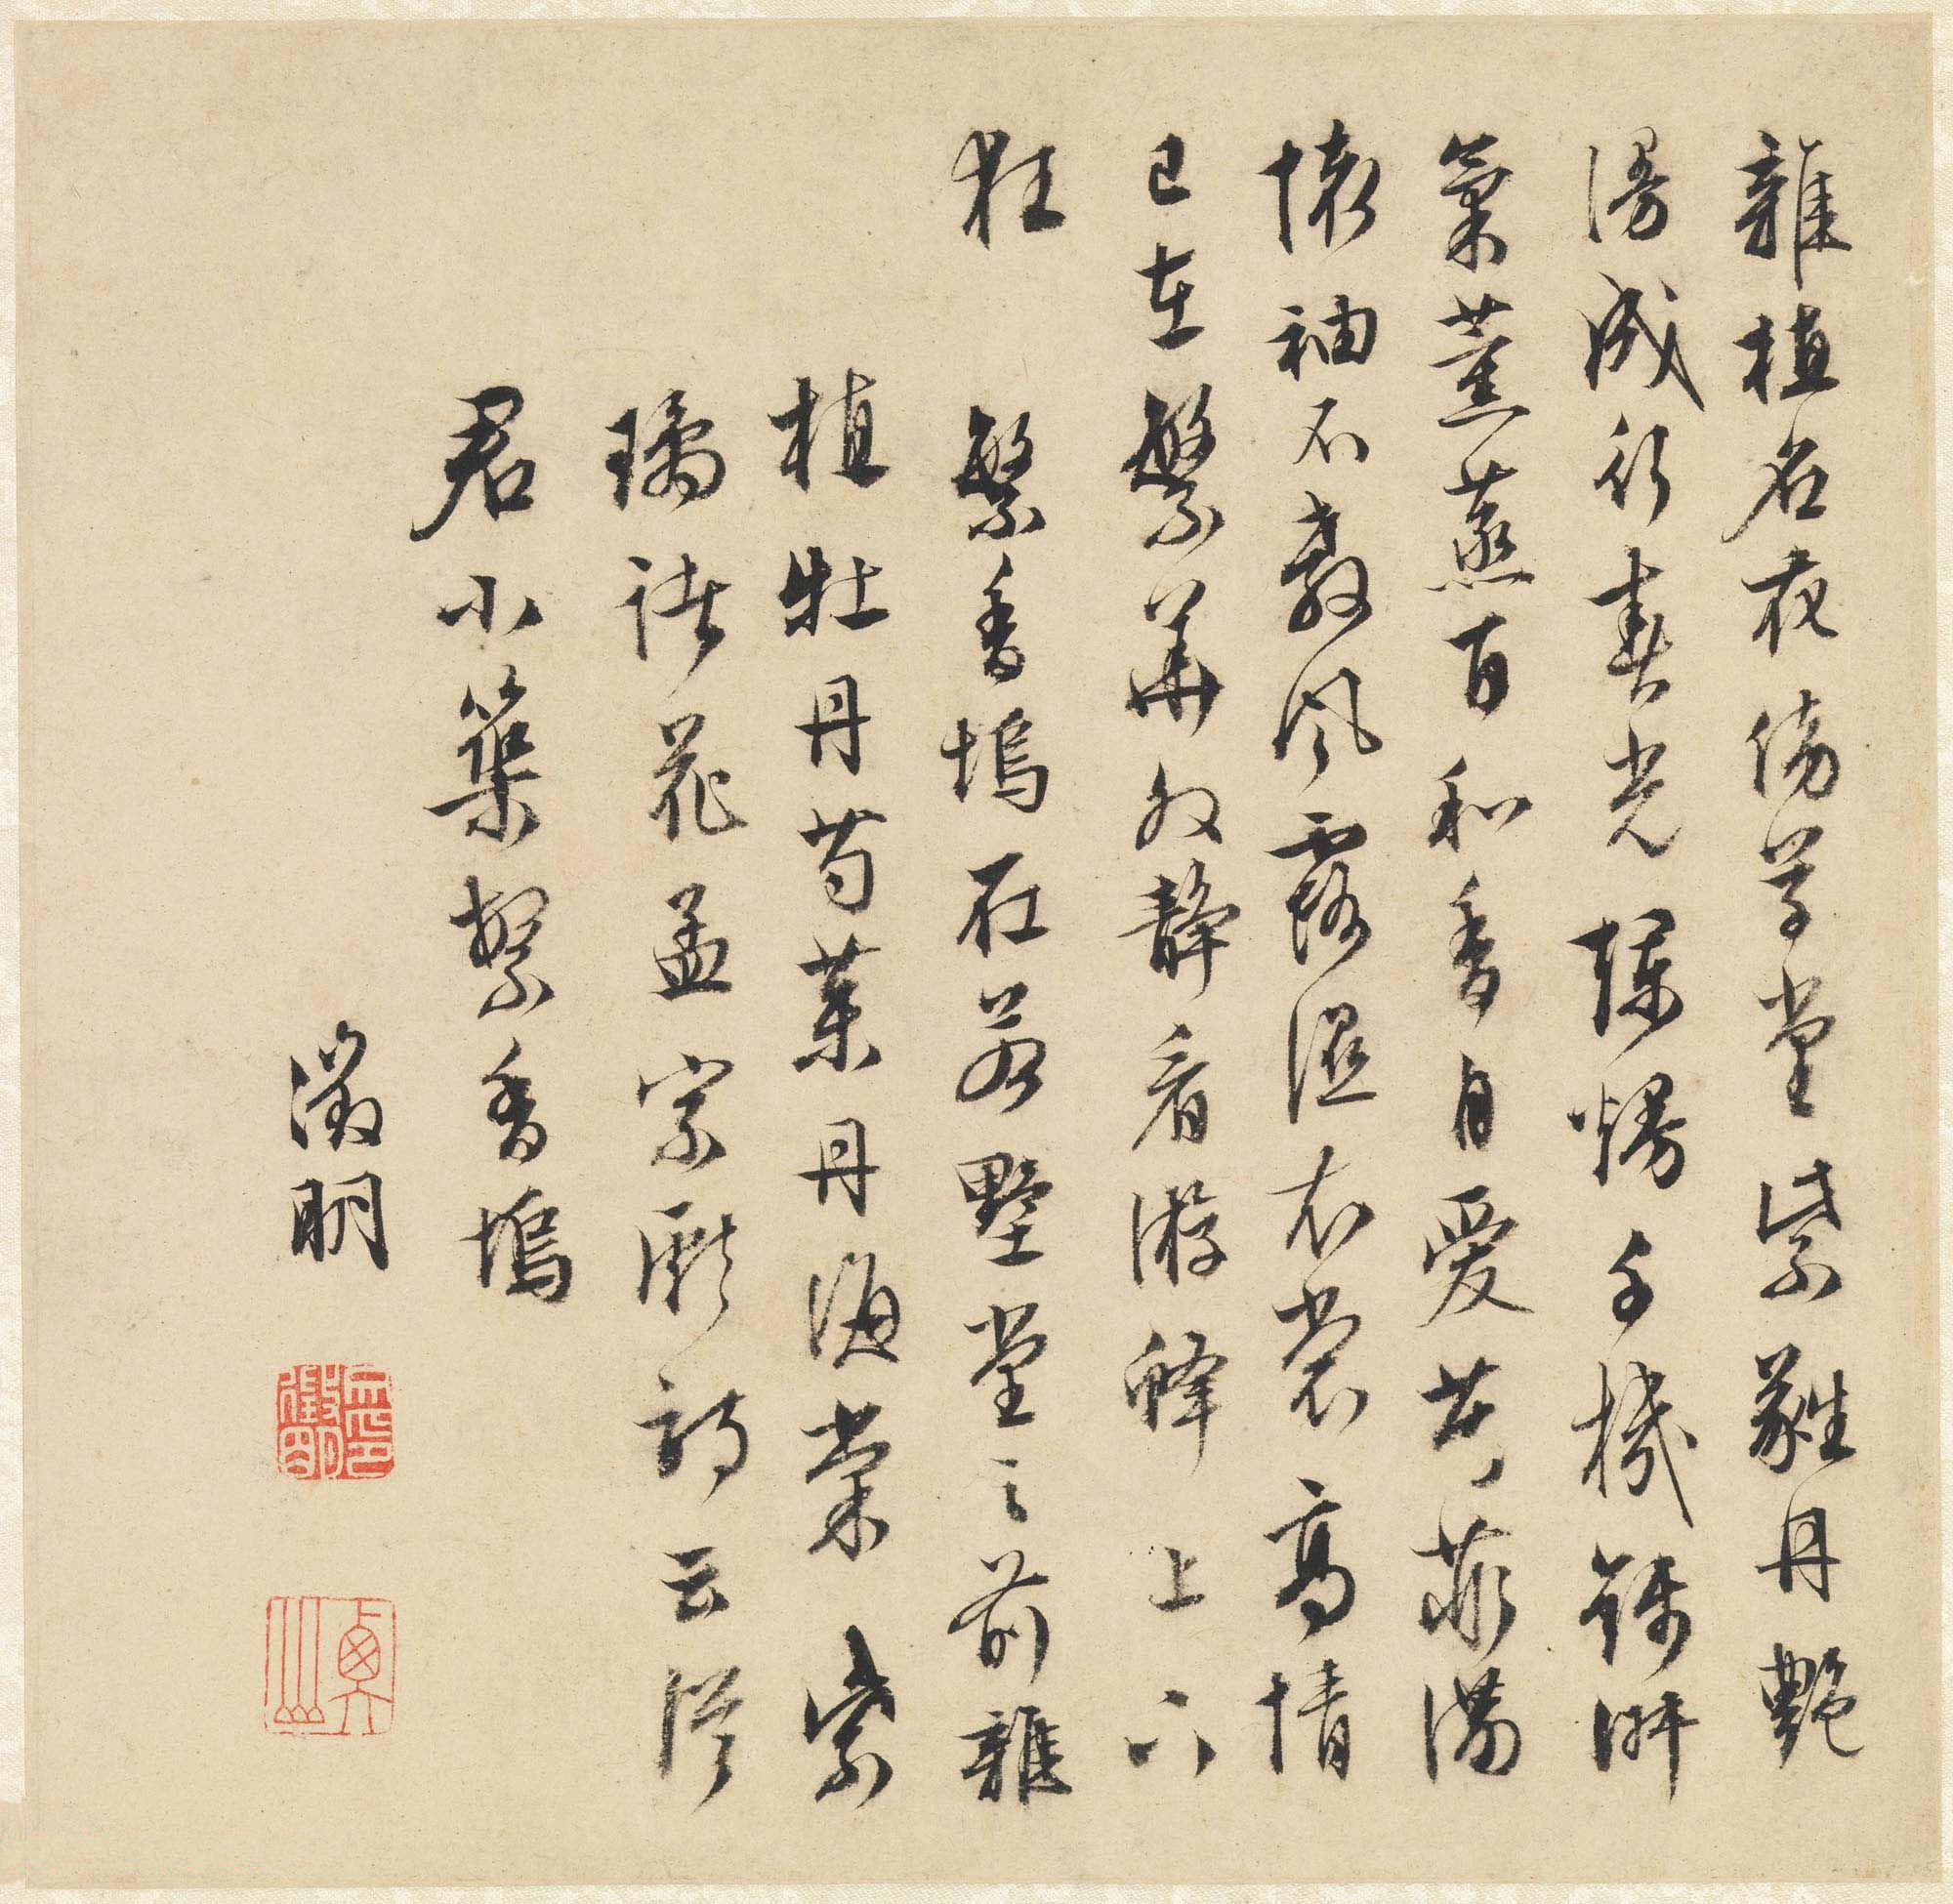 雜植名花傍草堂紫蕤丹艷
漫成行春光爛熳千機錦淑
氣薰蒸百和香自愛芳菲滿
懷袖不教風露濕衣裳高情
已在繁華外靜看游蜂上下
狂　繁香塢在若墅堂之前雜
植牡丹芍藥丹海棠紫
璚諸花孟宗獻詩云從
君小築繁香塢
徵明
徵明印